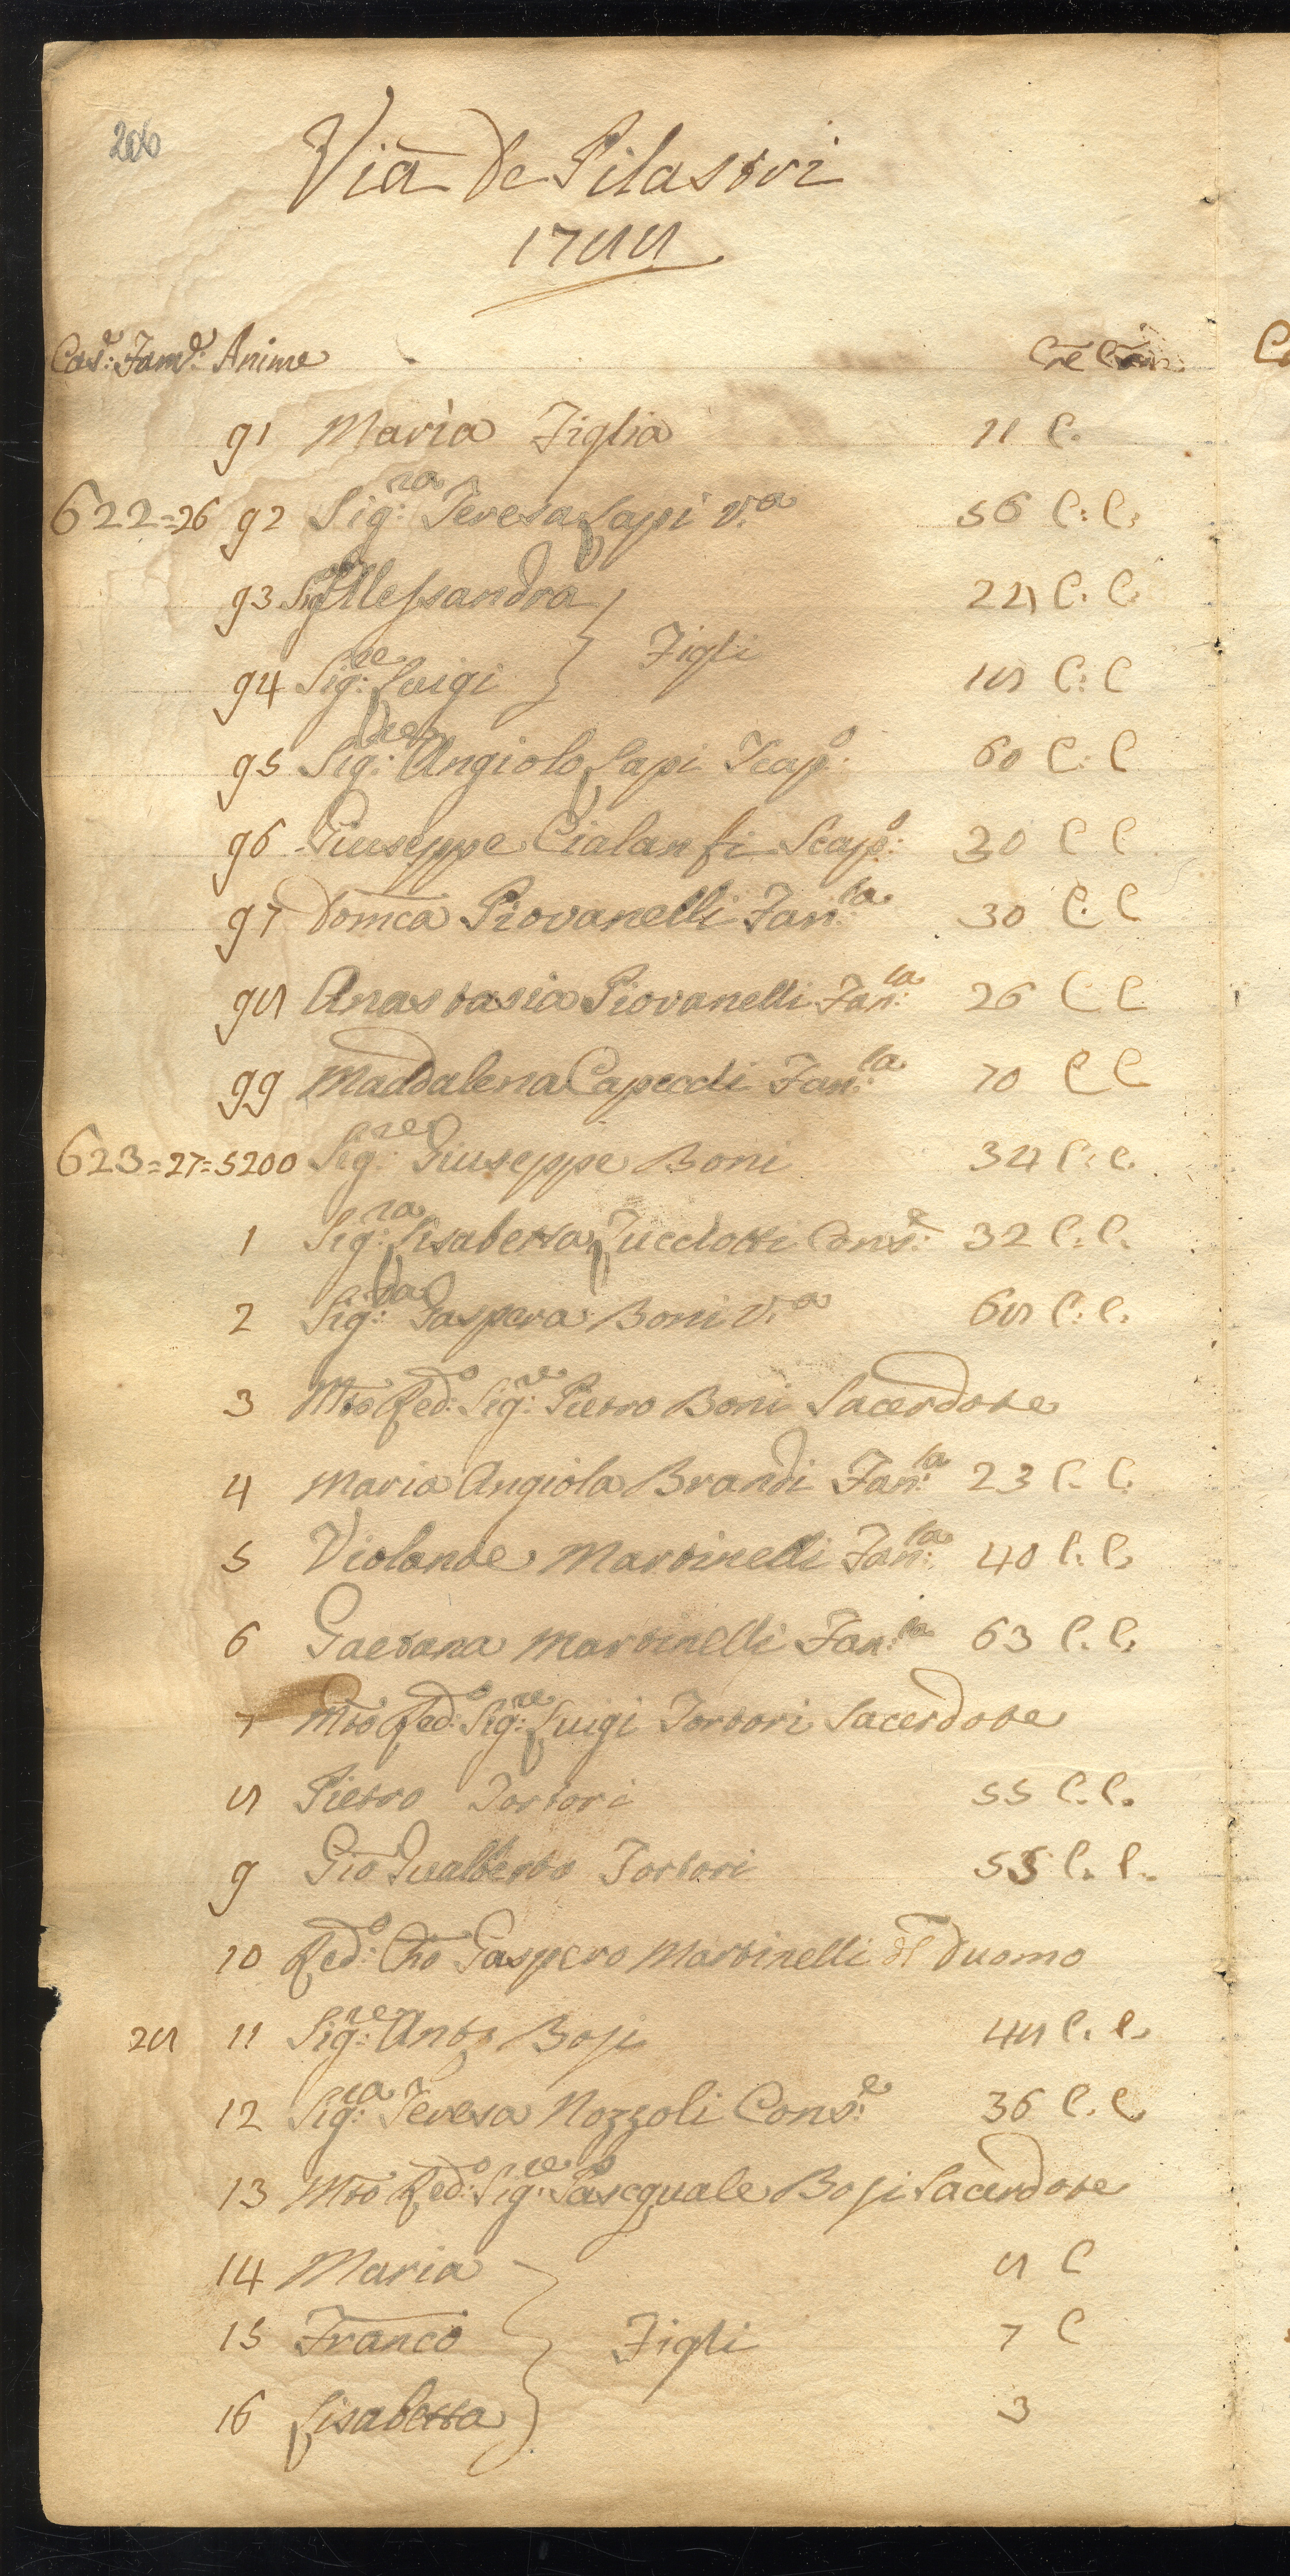 206
Via De Pilastri
1788
Cas.e: Fam.e: Anime Cre Com
91 Maria Figlia 11 C.
622=26 92 Sig:ra Teresa Lapi V.a 56 C: C:
93 Sig:ra Allessandra 24 C: C:
Figli
94 Sig:re Luigi 18 C: C
95 Sig:re Angiolo Lapi Scap.o: 60 C: C
96 Giuseppe Cialanfi Scap.o: 30 C C
97 Domca Piovanelli Fan:la 30 C: C
98 Anastasia Piovanelli Fan:la 26 C C
99 Maddalena Capecchi Fan:la 70 C C
623=27=5200 Sig:re Giuseppe Boni 34 C: C.
1 Sig:ra Lisabetta Zucclotti Cons.e: 32 C. C.
2 Sig:ra Gaspera Boni V.a 68 C: C.
3 Mto Red:o Sig:re Pietro Boni Sacerdote
4 Maria Angiola Brandi Fan:la 23 C. C.
5 Violante Martinelli Fan:la 40 C: C.
6 Gaetana Martinelli Fan:la 63 C. C.
7 Mto Red:o Sig:re Luigi Tortori Sacerdote
8 Pietro Tortori 55 C. C.
9 Gio Gualberto Tortori 55 C. C.
10 Red:o Cho Gaspero Martinelli dl Duomo
28 11 Sig:re Anto Bosi 48 C. C.
12 Sig:ra Teresa Nozzoli Cons:e 36 C. C.
13 Mto Red:o Sig:re Pascquale Bosi Sacerdote
14 Maria 8 C
15 Franco Figli 7 C
16 Lisabetta 3